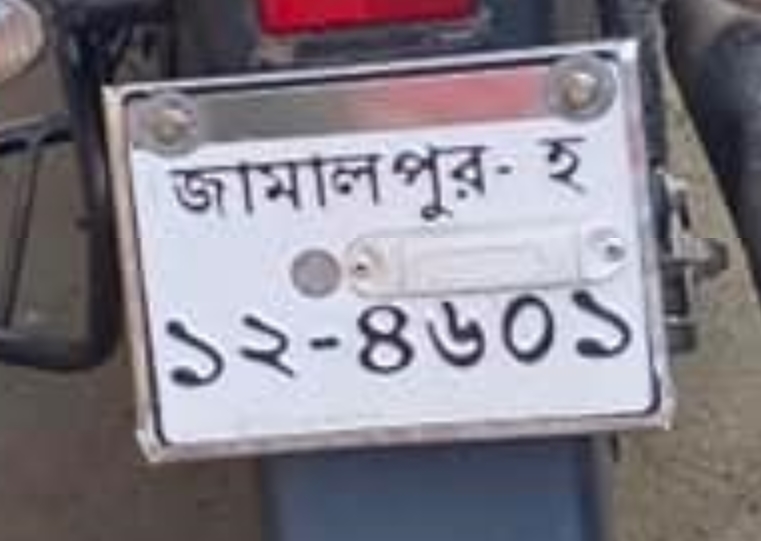 জামালপুর- হ
১২-৪৬০১